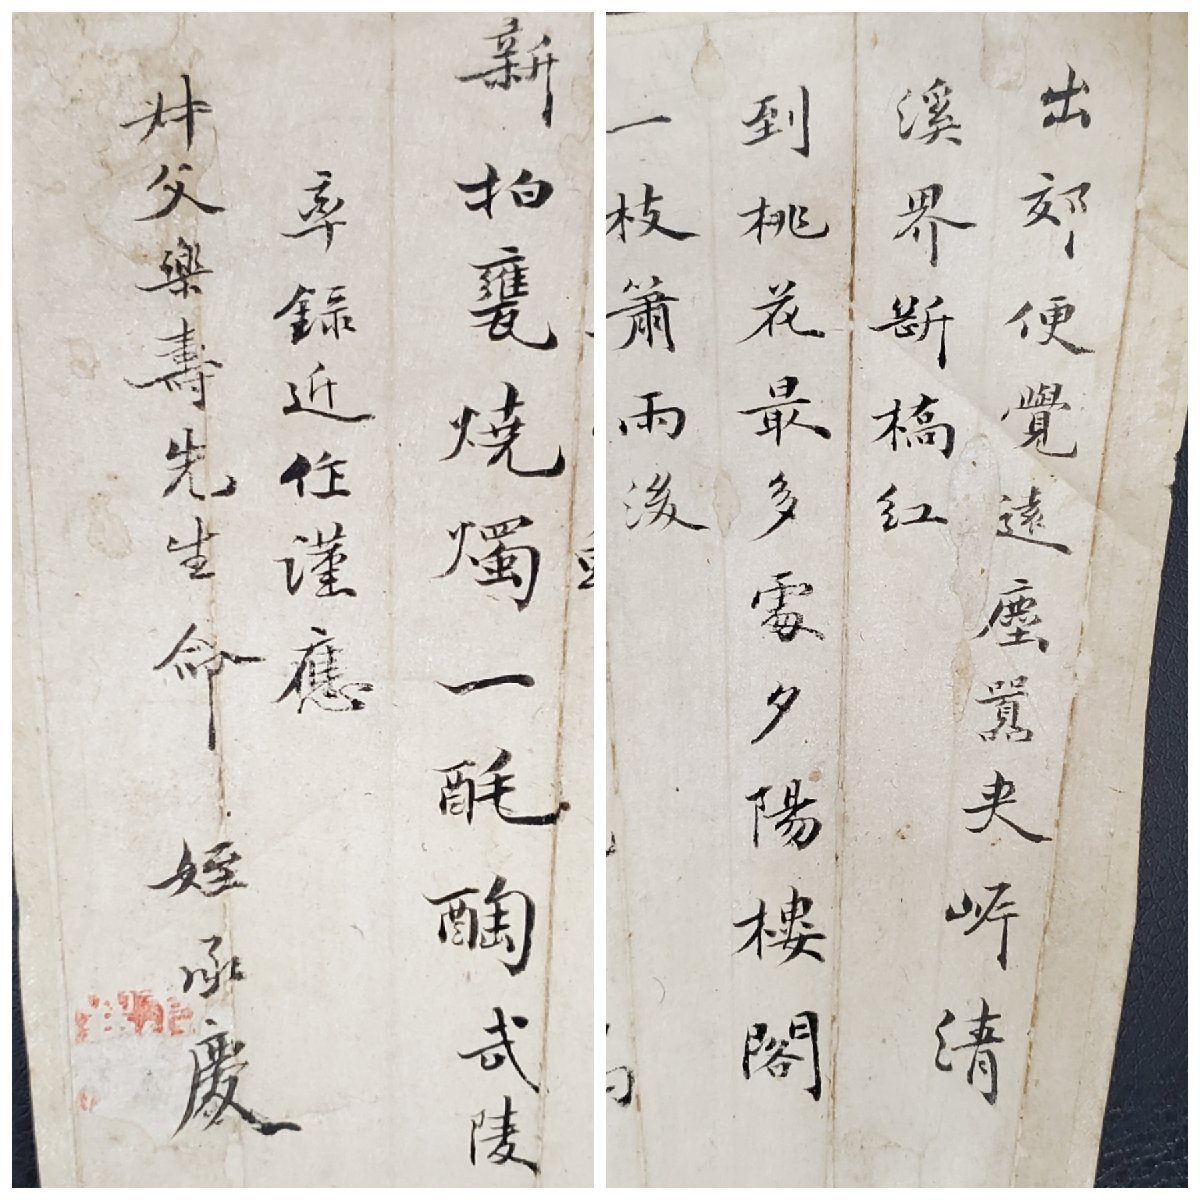 出郊便覺遠塵囂夾岸清
溪界斷橋紅
到桃花最多處夕陽樓閣
一枝簫雨後
新拍甕燒燭一酕醄武陵
率錄近作謹應
叔父樂壽先生命 姪承慶